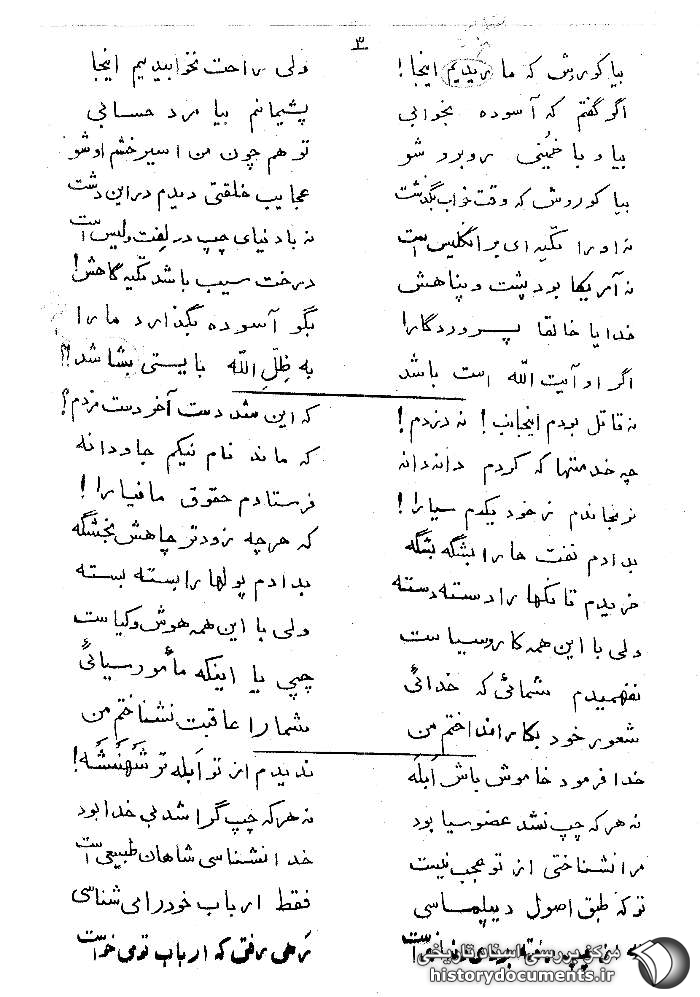 ۳
بیا کوروش که ما ریدیم اینجا! ولی راحت نخوابیدیم اینجا
اگر گفتم که آسوده بخوابی پشیمانم بیا مرد حسابی
بیا و با خمینی روبرو شو تو هم چون من اسیر خشم او شو
بیا کوروش که وقت خواب بگذشت عجایب خلقتی دیدم در این دشت
نه او را تکیه ای بر انگلیس است نه با دنیای چپ در لفت و لیس است
نه آمریکا بود پشت و پناهش درخت سیب باشد تکیه گاهش!
خدایا خالقا پروردگارا بگو آسوده بگذارد ما را
اگر او آیت الله است باشد به ظلّ الله بایستی بشاشد؟!
نه قاتل بودم اینجانب! نه دزدم! که این شد دست آخر دست مزدم؟
چه خدمتها که کردم دانه دانه که ماند نام نیکم جاودانه
نرنجاندم ز خود یکدم سیا را! فرستادم حقوق مافیا را!
بدادم نفت ها را بشگه بشگه که هرچه زودتر چاهش بخشگه
خریدم تانکها را دسته دسته بدادم پولها را بسته بسته
ولی با این همه کار و سیاست ولی با این همه هوش و کیاست
نفهمیدم شمائی که خدائی چپی یا اینکه مأمور سیائی
شعور خود بکار انداختم من شما را عاقبت نشناختم من
خدا فرمود خاموش باش ابله ندیدم از تو ابله تر شهنشه!
نه هر که چپ نشد عضو سیا بود نه هرکه چپ گرا شد بی خدا بود
مرا نشناختی از تو عجب نیست خدا نشناسی شاهان طبیعی است
تو که طبق اصول دیپلماسی فقط ارباب خود را می شناسی
رهی رفتی که ارباب تو می خواست
مرکز بررسی اسناد تاریخی
historydocuments.ir